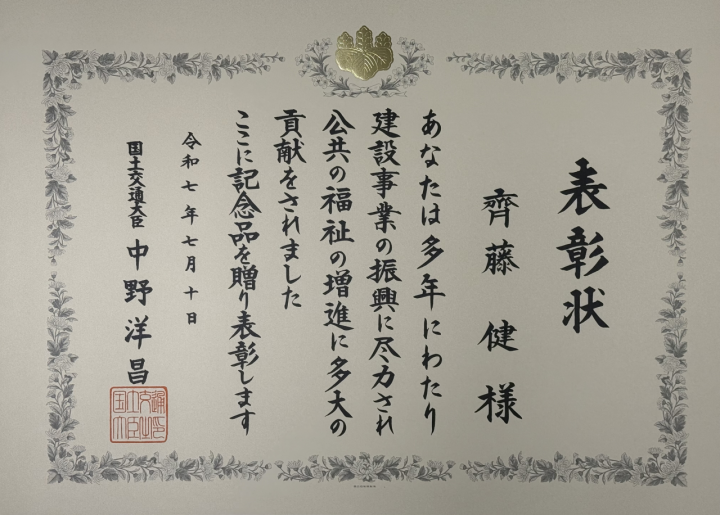 表彰状
齊藤健様
あなたは多年にわたり
建設事業の振興に尽力され
公共の福祉の増進に多大の
貢献をされました
ここに記念品を贈り表彰します
令和七年七月十日
国土交通大臣 中野洋昌
国土交通大臣之印